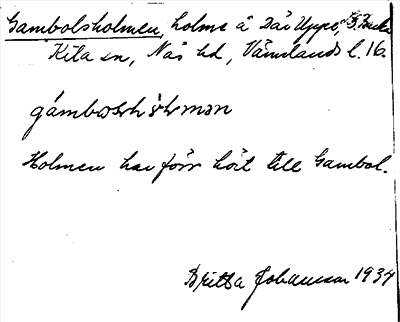 Gambolsholmen, holme å Där Uppe,
Kila sn, Näs hd, Värmlands l. 16.
Holmen har förr hört till Gambol.
Britta Johansson 1934